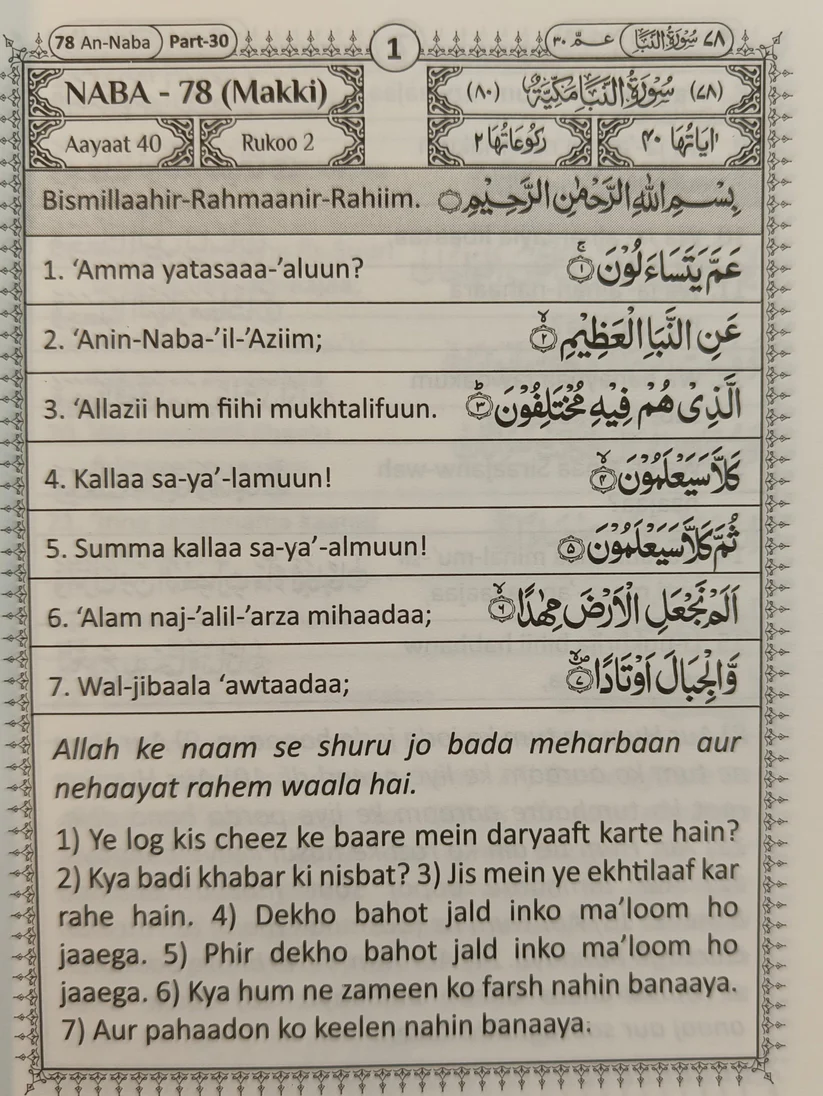 78 An-Naba Part-30 1 عمّ ۳۰ سُوْرَةُ النَّبَاِ ۷۸
NABA - 78 (Makki) (۸۰) سُوْرَةُ النَّبَاِ مَكِّيَّةٌ (۷۸)
Aayaat 40 Rukoo 2 رُكُوْعَاتُهَا ۲ اٰيَاتُهَا ۴۰
Bismillaahir-Rahmaanir-Rahiim. بِسْمِ اللّٰهِ الرَّحْمٰنِ الرَّحِيْمِ
1. ‘Amma yatasaaa-’aluun? عَمَّ يَتَسَآءَلُوْنَ ۚ‏﴿۱﴾
2. ‘Anin-Naba-’il-’Aziim; عَنِ النَّبَاِ الْعَظِيْمِ ۙ‏﴿۲﴾
3. ‘Allazii hum fiihi mukhtalifuun. الَّذِىْ هُمْ فِيْهِ مُخْتَلِفُوْنَ ؕ‏﴿۳﴾
4. Kallaa sa-ya’-lamuun! كَلَّا سَيَعْلَمُوْنَ ۙ‏﴿۴﴾
5. Summa kallaa sa-ya’-almuun! ثُمَّ كَلَّا سَيَعْلَمُوْنَ ﴿۵﴾
6. ‘Alam naj-’alil-’arza mihaadaa; اَلَمْ نَجْعَلِ الْاَرْضَ مِهٰدًا ۙ‏﴿۶﴾
7. Wal-jibaala ‘awtaadaa; وَّالْجِبَالَ اَوْتَادًا ﴿۷﴾
Allah ke naam se shuru jo bada meharbaan aur
nehaayat rahem waala hai.
1) Ye log kis cheez ke baare mein daryaaft karte hain?
2) Kya badi khabar ki nisbat? 3) Jis mein ye ekhtilaaf kar
rahe hain. 4) Dekho bahot jald inko ma’loom ho
jaaega. 5) Phir dekho bahot jald inko ma’loom ho
jaaega. 6) Kya hum ne zameen ko farsh nahin banaaya.
7) Aur pahaadon ko keelen nahin banaaya.